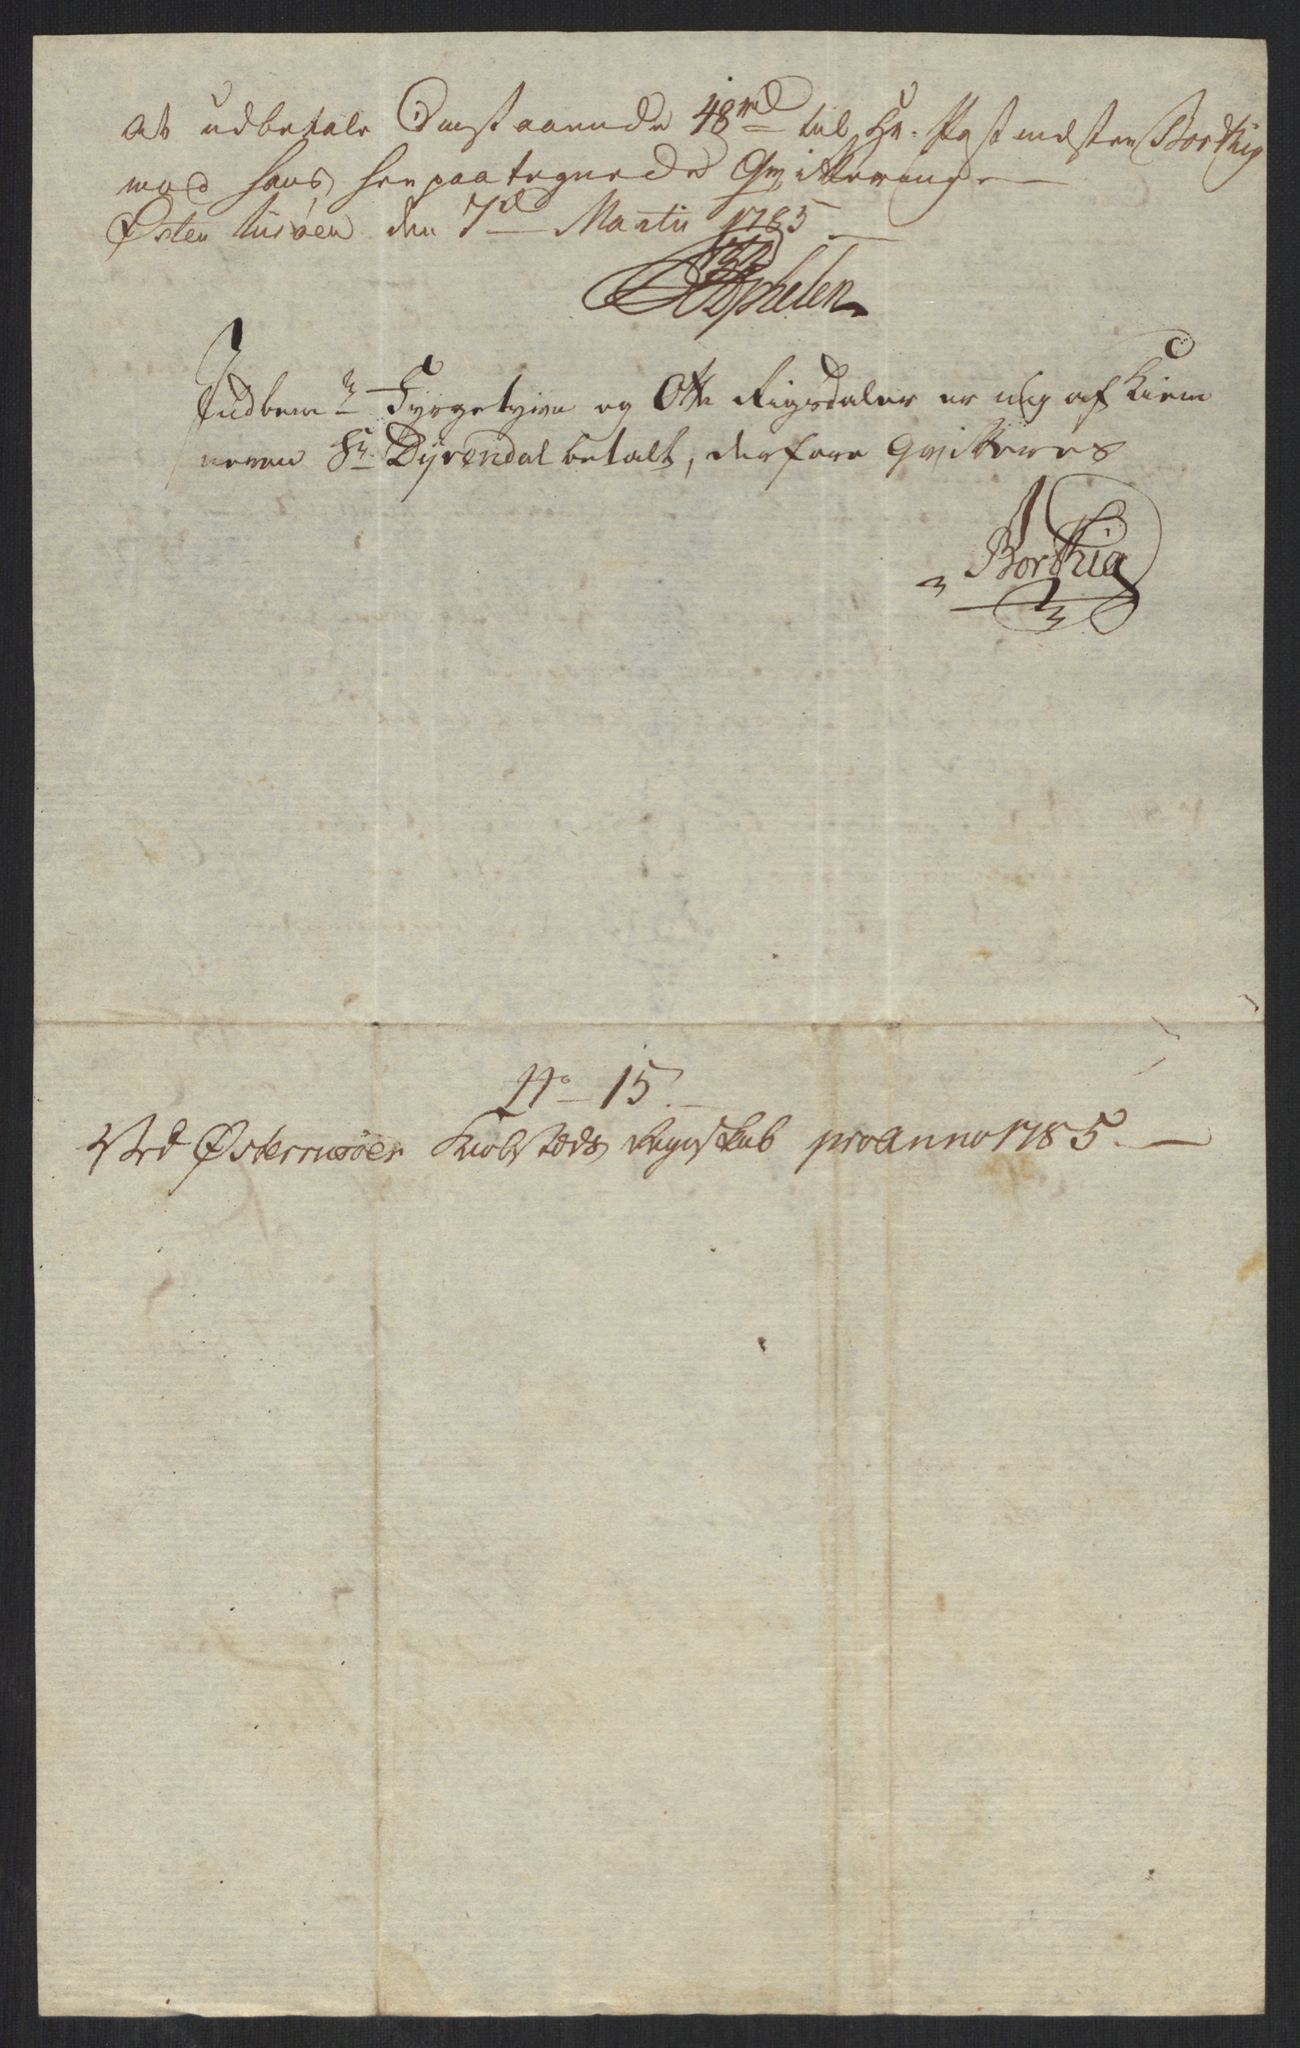 at udbetale Omstaaende 48 rd til Hr. Postmester Borthig
mod hans herpaa tegnede Qvittering.
Øster Riisøer den 7de Martii 1785
Indbem.te Fyrgetyve og Otte Rigsdaler er mig af Kiem
neren Hr Dyrendal betalt, derfore Qvitteres
Borthig
No 15.
Ved Østerriisøer Kiobstæds Regnskab pro Anno 1785.